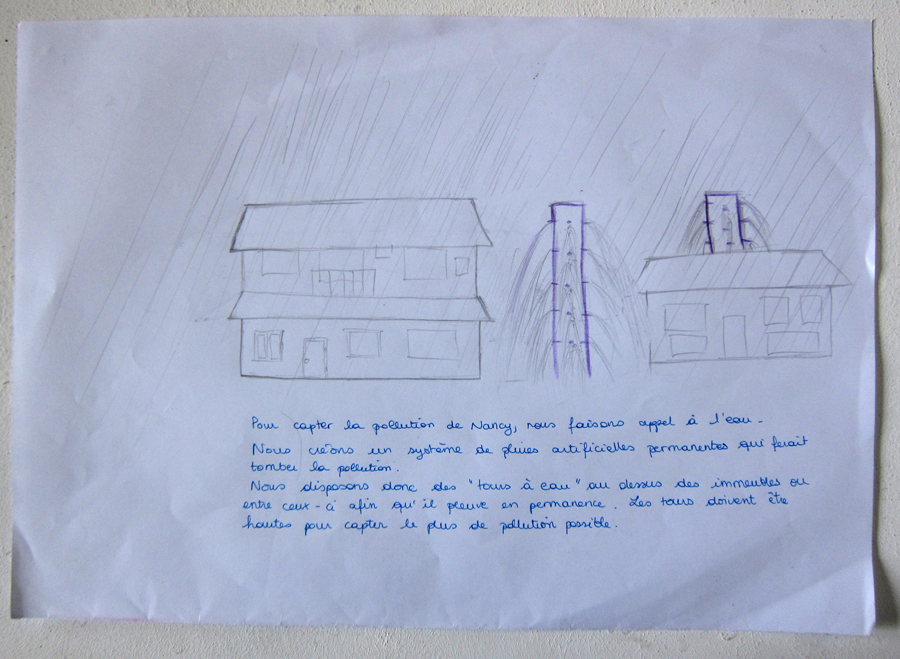 Pour capter la pollution de Nancy, nous faisons appel à l'eau.
Nous créons un système de pluies artificielles permanentes qui ferait
tomber la pollution.
Nous disposons donc des "tours à eau" au dessus des immeubles ou
entre ceux-ci afin qu'il pleuve en permanence. Les tours doivent être
hautes pour capter le plus de pollution possible.